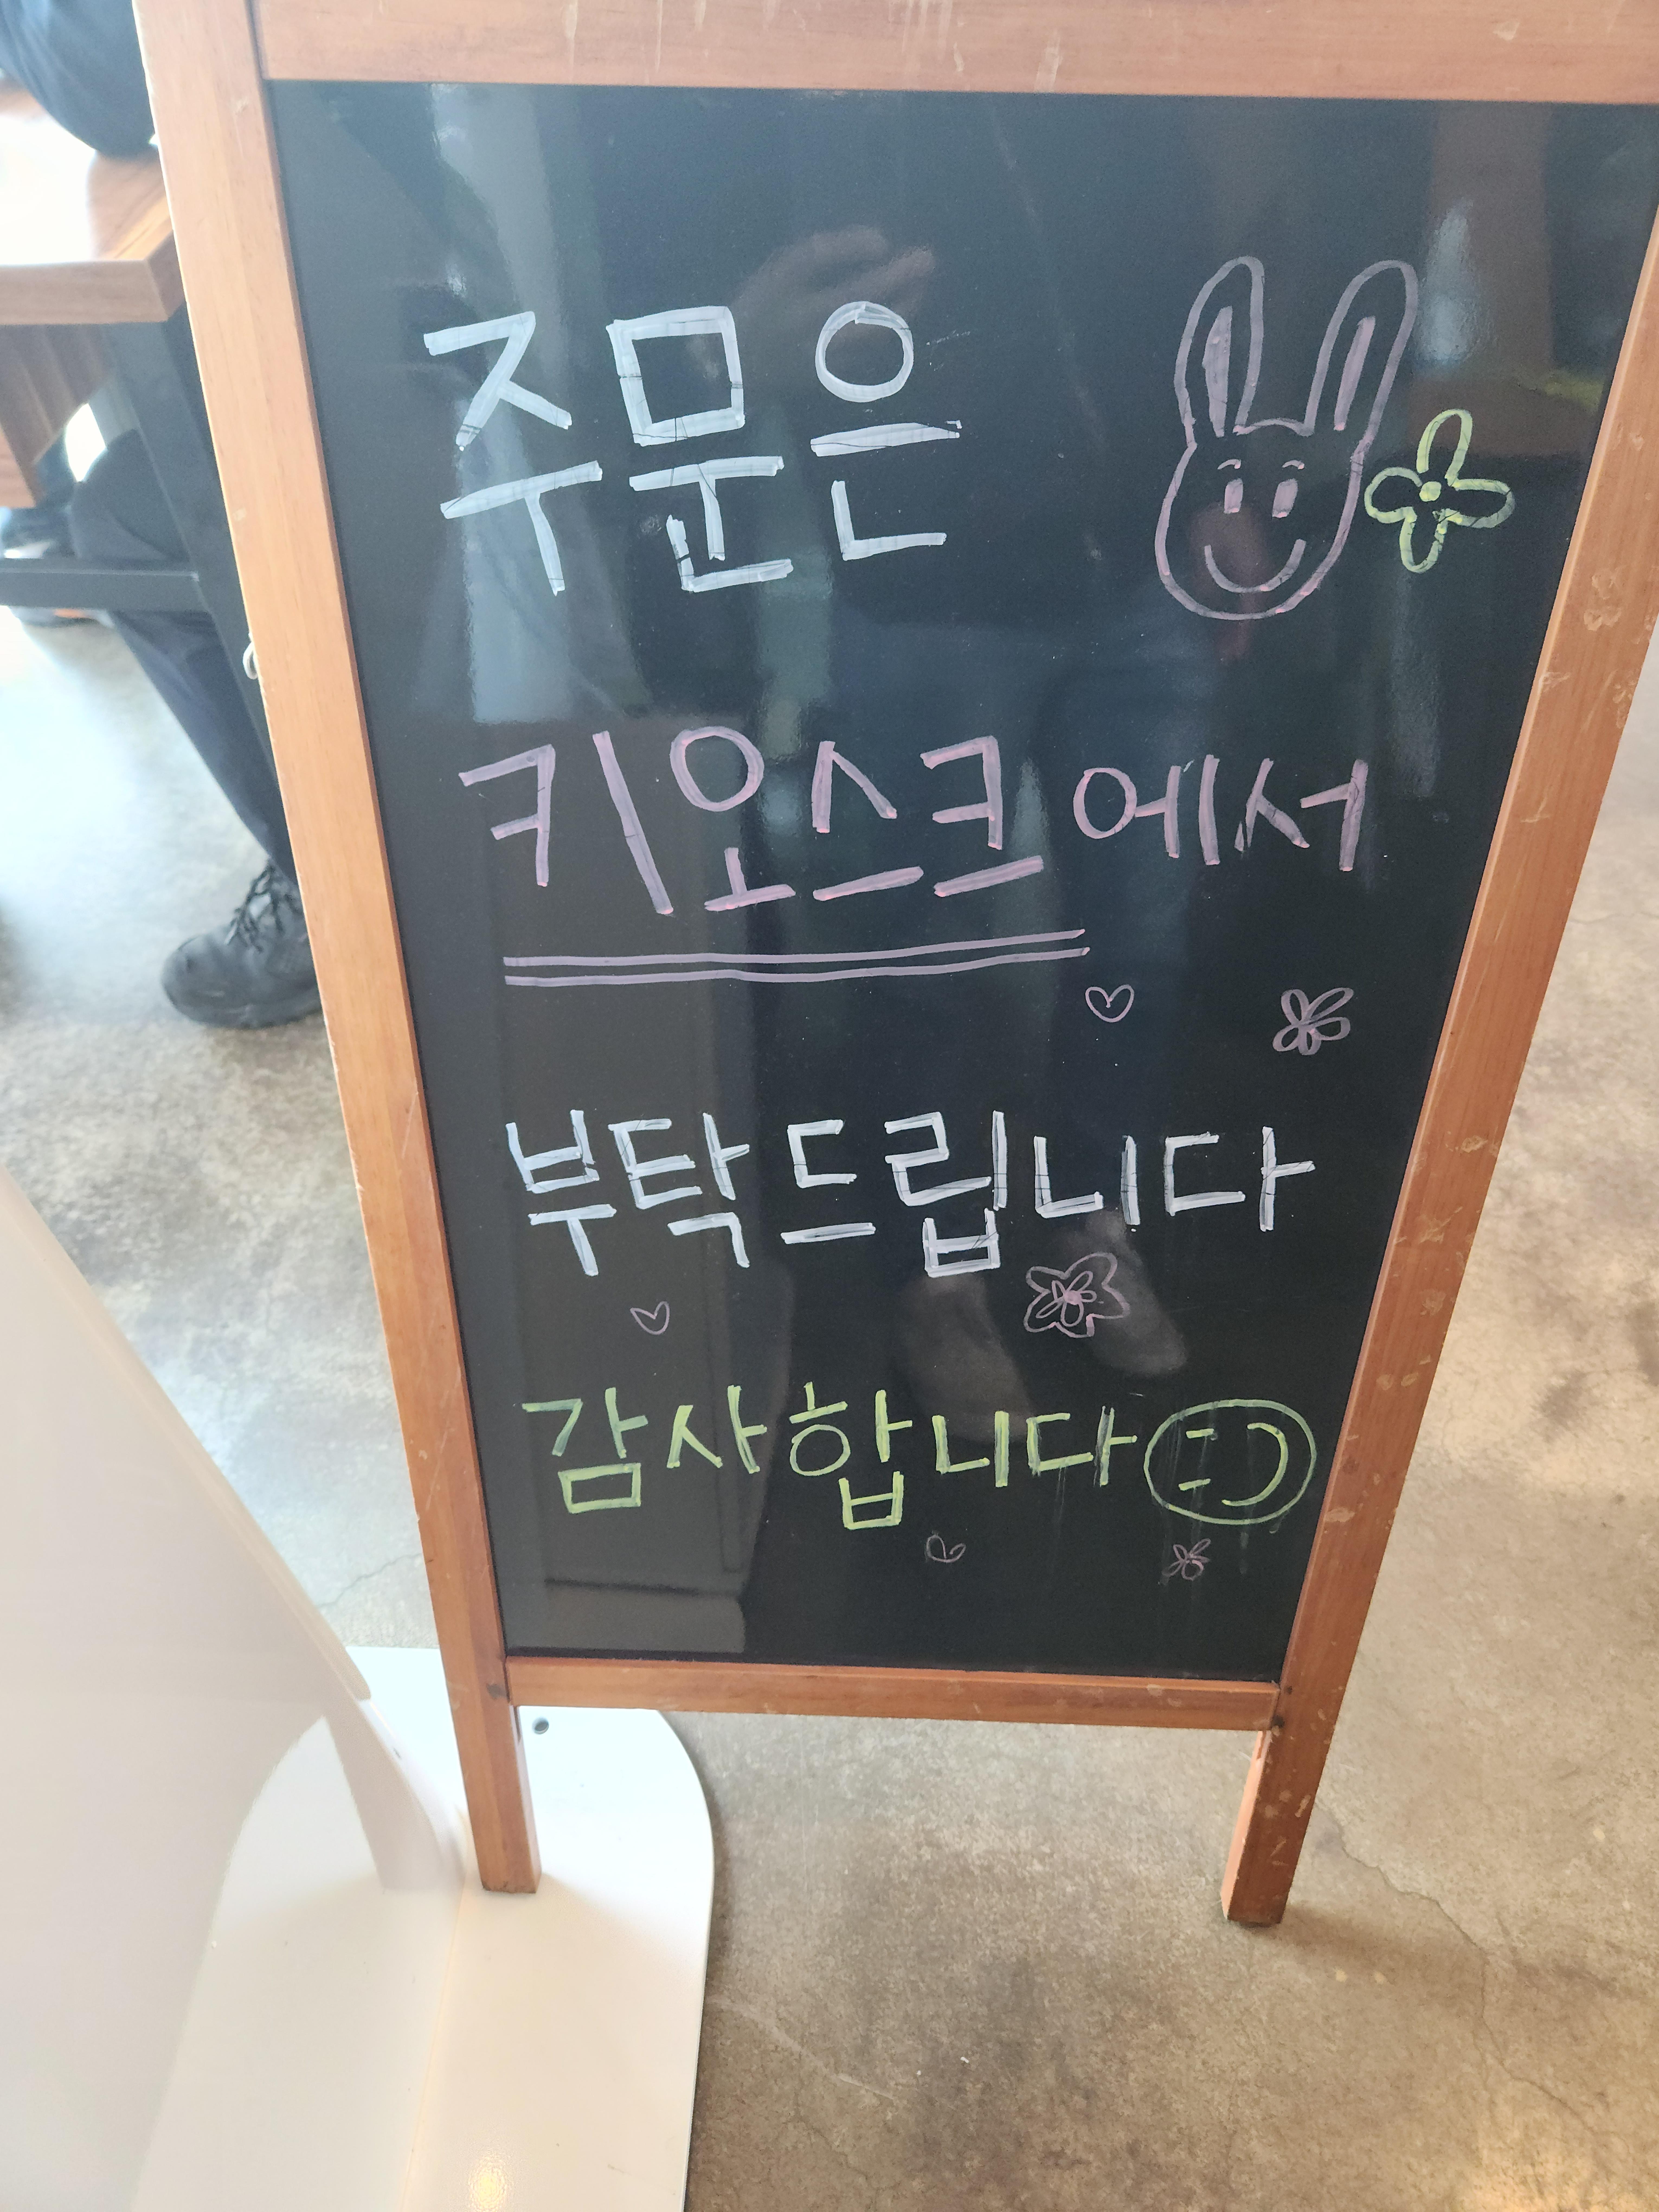 주문은
키오스크에서
부탁드립니다
감사합니다 :)